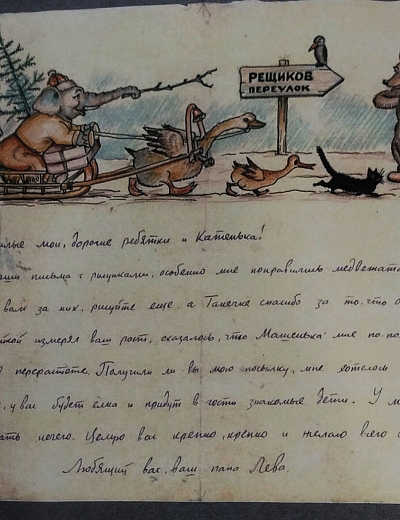 РЕЩИКОВ
ПЕРЕУЛОК
милые мои, дорогие ребятки и Катенька!
ваши письма с рисунками, особенно мне понравились медвежата
вам за них, рисуйте еще, а Танечке спасибо за то, что
измерял ваш рост, оказалось, что Машенька мне по по
перерастете. Получили ли вы мою посылку, мне хотелось
у вас будет ёлка и придут в гости знакомые дети. У м
ать нечего. Целую вас крепко, крепко и желаю всего
Любящий вас, ваш папа Лёва.